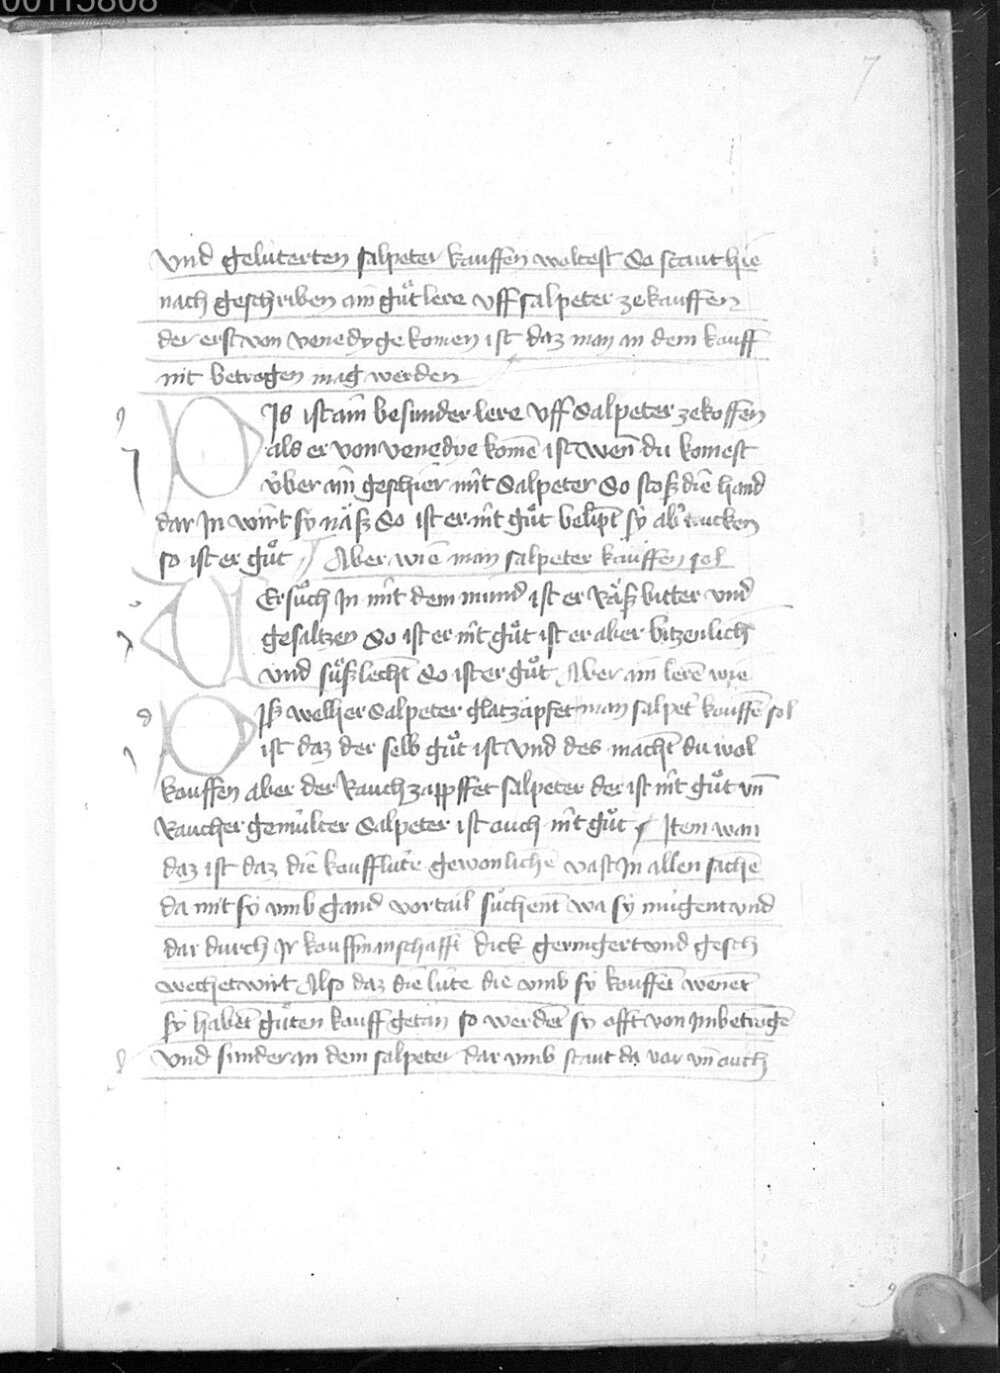 00115808
7
vnd gelúterten salpeter kauffen woltest So staut hie
nach geschriben ain gůt lere vff salpeter ze kauffen
der erst von venedyge komen ist daz man an dem kauff
nit betrogen mag werden
Dis ist ain besunder lere vff Salpeter ze koffen
als er von venedye komē ist wen̄ du komest
v́ber ain geschier mit Salpeter So stoß die hand
dar Jn wirt sy näß So ist er nit gůt belipt sy aber trucken
so ist er gůt Aber wie man salpeter kauffen sol
Versůch Jn mit dem mund ist er Räß bitter vnd
gesaltzen So ist er nit gůt ist er aber bitzenlich
vnd sůßlecht So ist er gůt Aber ain lere wie
Diß welher Salpeter glatzäpfet man salpet kouffē sol
ist daz der selb gůt ist vnd des macht du wol
kouffen aber der Rauch zappffet salpeter der ist nit gůt vn̄
Raucher gemúlter Salpeter ist auch nit gůt Item wan
daz ist daz die koufflúte gewonlichē vast Jn allen sachē
da mit sy vmb gand vortail sůchent wa sy múgent vnd
dar durch Jr kouffmanschafft dick geringert vnd gesch
wechet wirt Also daz die lúte die vmb sy kouffet wenet
sy habēt gůten kauff getän so werdēt sy offt von Jm betrogē
vnd sunder an dem salpeter dar vmb staut da vor vn̄ ouch